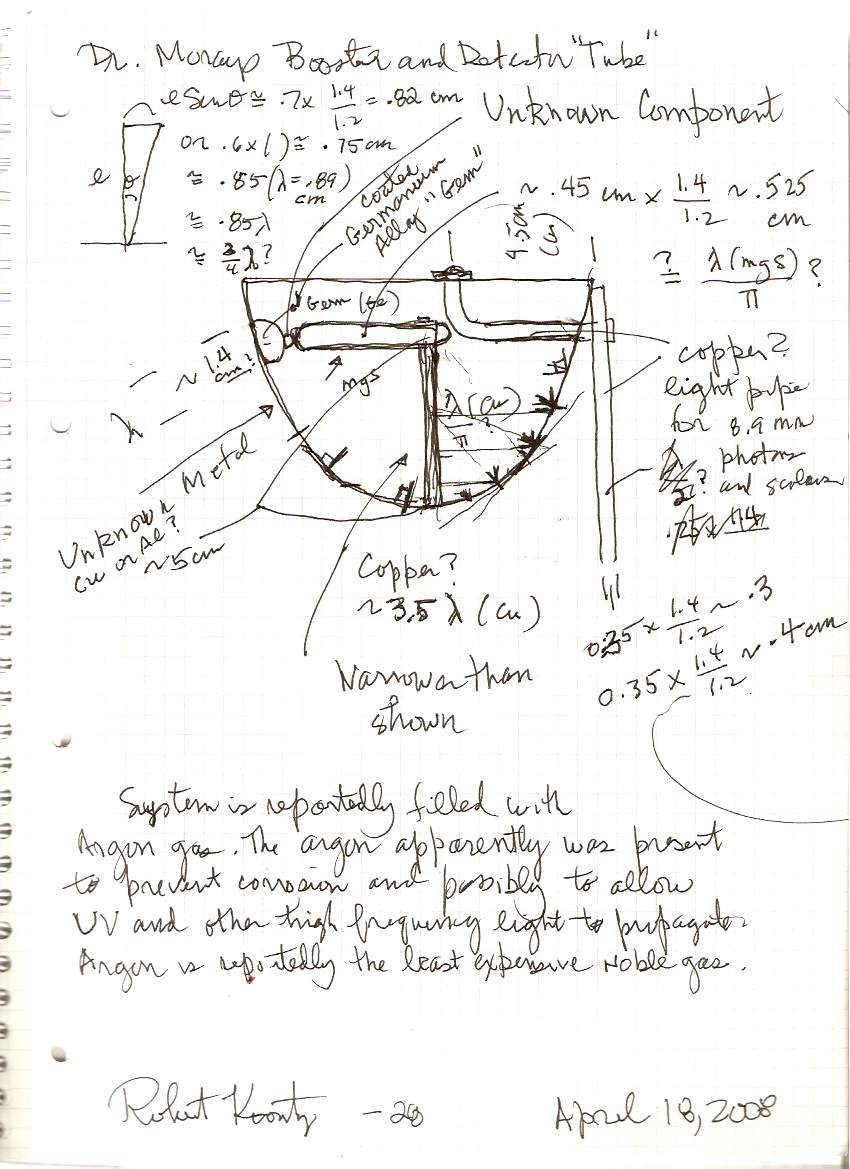 Dr. Moray's Booster and Detector "Tube"
e Sinθ ≅ .7 x 1.4/1.2 = .82 cm
or .6 x ( ) ≅ .75 cm
≅ .85 (λ = .89) cm
≅ .85λ
≅ 3/4 λ?
e
θ
Unknown Component
coated
Germanium
Alloy "Gem"
~ .45 cm x 1.4/1.2 ~ .525 cm
≟ λ(mgs)/π ?
4.5cm
(Cu)
Germ (Ge)
~ 1.4 cm?
λ
mgs
λ(Cu)/π ?
copper?
light pipe
for 8.9 mm
photons
and scalars
λ/2?
.25 x 1.4
Unknown Metal
Cu or Al?
~5cm
Copper?
~3.5 λ (Cu)
0.25 x 1.4/1.2 ~ .3
0.35 x 1.4/1.2 ~ .4 cm
Narrower than
shown
System is reportedly filled with
Argon gas. The argon apparently was present
to prevent corrosion and possibly to allow
UV and other high frequency light to propagate.
Argon is reportedly the least expensive Noble gas.
Robert Koontz - 20 April 18, 2008